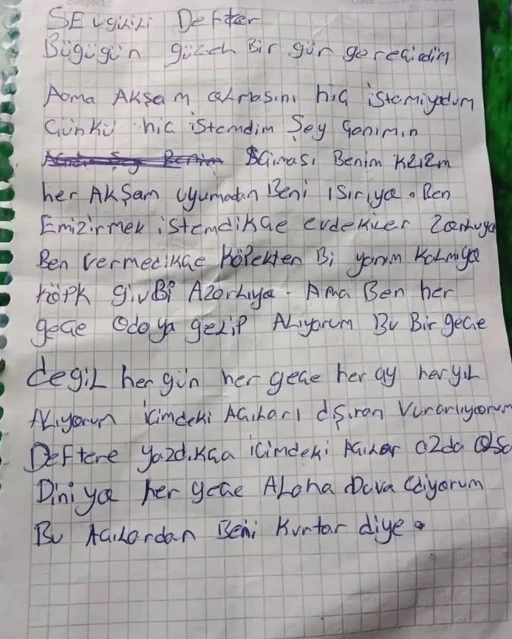 SEvgilili Defter
Bügügün güzeh Bir gün gereçidim
Aama AKşam olmasını hiç istemiyodum
Çünkü hiç istemdim Şey Canımın
Açiması Benim Kızım
her AKşam uyumadan Beni ısırıya. Ben
Emizirmek istemdikçe evdekiler Zorluya
Ben vermedikçe Köpekten Bi yanım Kalmıya
Köpk givBi Azarlıya. Ama Ben her
geçe Odaya gelip Alıyorum Bu Bir geçe
degil her gün her geçe her ay her yıl
Alıyorum İcimdeki Açıları dşıran Vuramıyorum
Deftere yazdıkça içimdeki Açılar azda Olsa
Diniya her geçe Alaha Duva Ediyorum
Bu Açılardan Beni Kurtar diye.